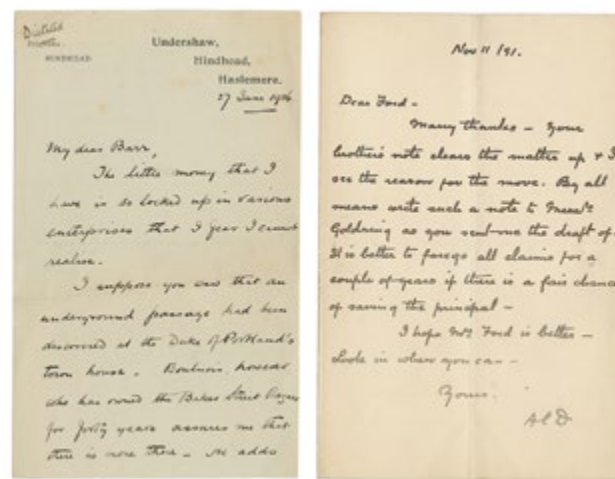 Dictated
HINDHEAD
Undershaw,
Hindhead,
Haslemere.
27 June 1906
My dear Barr,
The little money that I
have is so locked up in various
enterprises that I fear I cannot
realise.
I suppose you saw that an
underground passage had been
discovered at the Duke of Portland's
town house. Boulnois, however
who has owned the Baker Street Bazaar
for forty years assures me that
there is none there. He adds
Nov 11 /91.
Dear Ford -
Many thanks - Your
brother's note clears the matter up & I
see the reason for the move. By all
means write such a note to Messrs
Goldring as you sent me the draft of.
It is better to forego all claims for a
couple of years if there is a fair chance
of saving the principal -
I hope Mrs Ford is better -
Look in when you can -
Yours.
ACD